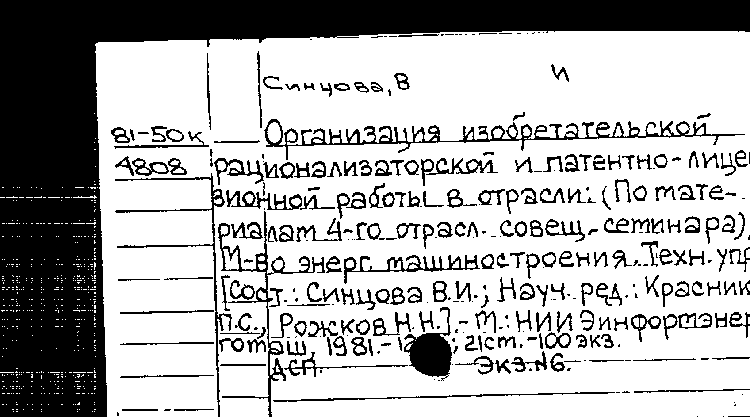 Синцова, В И
81-50к Организация изобретательской,
4808 рационализаторской и патентно-лице
зионной работы в отрасли: (По мате-
риалам 4-го отрасл. совещ.-семинара)
М-во энерг. машиностроения. Техн. упр
[Сост.: Синцова В.И.; Науч. ред.: Красник
П.С., Рожков Н.Н.].- М.: НИИЭинформэнер
готаш, 1981.- ; 21см. -100 экз.
ДСП. Экз.№6.